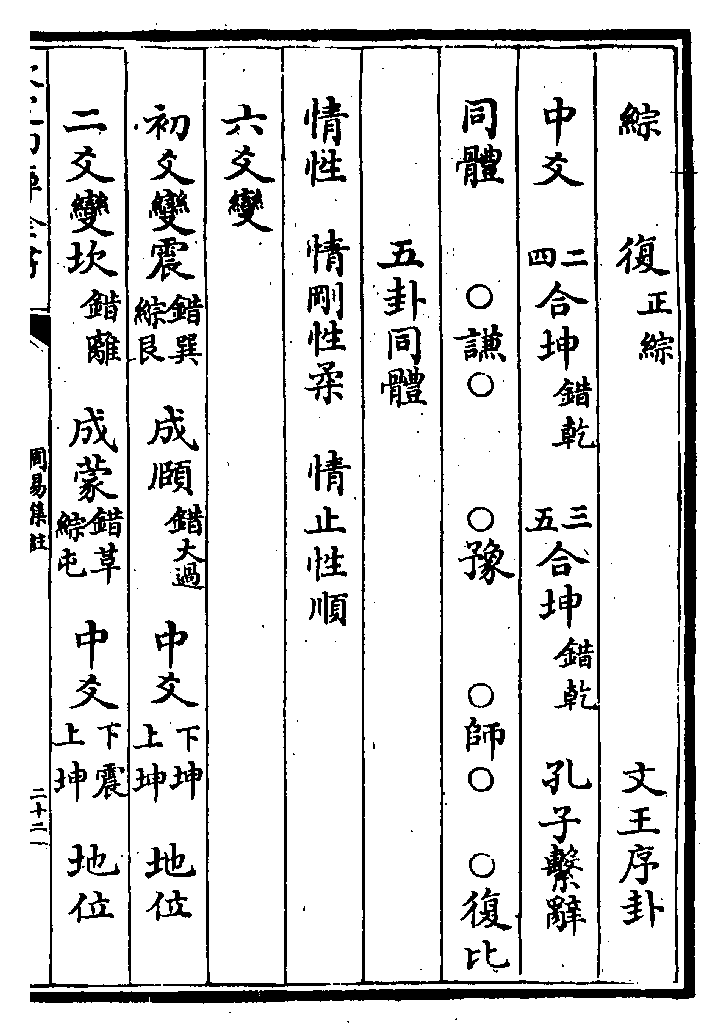 綜　復正綜　文王序卦
中爻　二四合坤錯乾　三五合坤錯乾　孔子繫辭
同體　○謙○　○豫　○師○　○復比
五卦同體
情性　情剛性柔　情止性順
六爻變
初爻變震錯巽綜艮　成頤錯大過　中爻下坤上坤　地位
二爻變坎錯離　成蒙錯革綜屯　中爻下震上坤　地位
周易集註　二十二